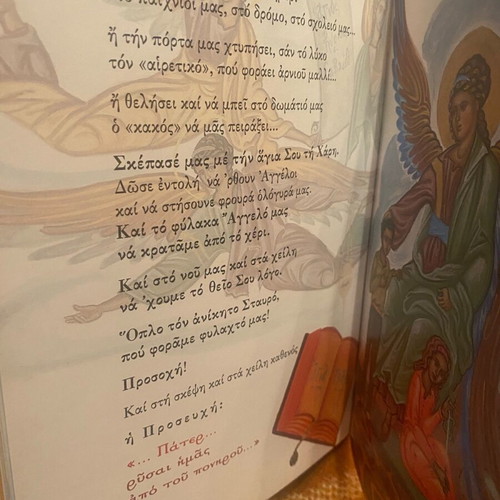 παιχνίδι μας, στό δρόμο, στό σχολειό μας...
ἤ τήν πόρτα μας χτυπήσει, σάν τό λύκο
τόν «αἱρετικό», πού φοράει ἀρνιοῦ μαλλί...
ἤ θελήσει καί νά μπεῖ στό δωμάτιό μας
ὁ «κακός» νά μᾶς πειράξει...
Σκέπασέ μας μέ τήν ἅγια Σου τή Χάρη.
Δῶσε ἐντολή νά 'ρθουν Ἀγγέλοι
καί νά στήσουνε φρουρά ὁλόγυρά μας.
Καί τό φύλακα Ἄγγελό μας
νά κρατᾶμε ἀπό τό χέρι.
Καί στό νοῦ μας καί στά χείλη
νά 'χουμε τό θεῖο Σου λόγο.
Ὅπλο τόν ἀνίκητο Σταυρό,
πού φορᾶμε φυλαχτό μας!
Προσοχή!
Καί στή σκέψη καί στά χείλη καθενός
ἡ Προσευχή:
«... Πάτερ...
ρῦσαι ἡμᾶς
ἀπό τοῦ πονηροῦ...»